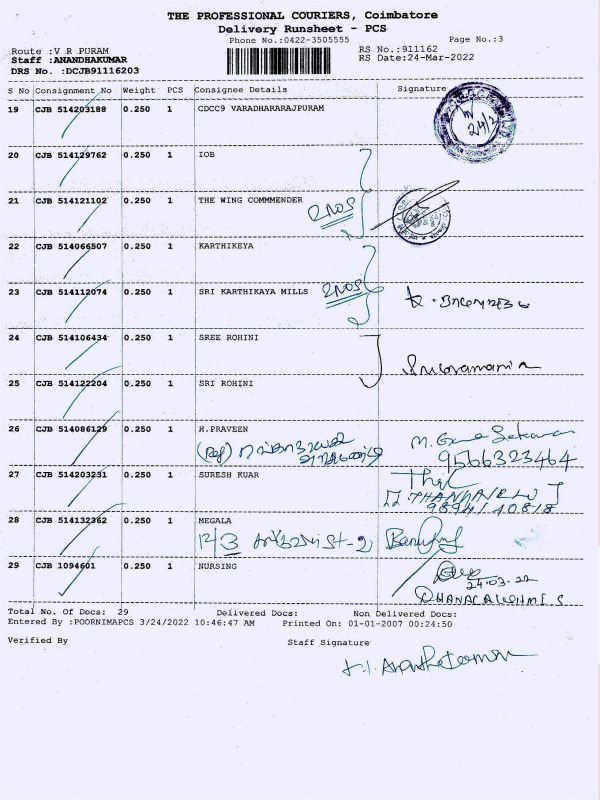 THE PROFESSIONAL COURIERS, Coimbatore
Delivery Runsheet - PCS
Phone No.:0422-3505555 Page No.:3
Route :V R PURAM RS No.:911162
Staff :ANANDHAKUMAR RS Date:24-Mar-2022
DRS No. :DCJB91116203
S No Consignment No Weight PCS Consignee Details Signature
19 CJB 514203188 0.250 1 CDCC9 VARADHARARAJPURAM
20 CJB 514129762 0.250 1 IOB
21 CJB 514121102 0.250 1 THE WING COMMMENDER
2 NOS
22 CJB 514066507 0.250 1 KARTHIKEYA
23 CJB 514112074 0.250 1 SRI KARTHIKAYA MILLS 2 NOS
24 CJB 514106434 0.250 1 SREE ROHINI
25 CJB 514122204 0.250 1 SRI ROHINI
26 CJB 514086129 0.250 1 H.PRAVEEN
9566323464
27 CJB 514203231 0.250 1 SURESH KUAR
9894140818
28 CJB 514132362 0.250 1 MEGALA
12/3
29 CJB 1094601 0.250 1 NURSING
24.03.22
Total No. Of Docs: 29 Delivered Docs: Non Delivered Docs:
Entered By :POORNIMAPCS 3/24/2022 10:46:47 AM Printed On: 01-01-2007 00:24:50
Verified By Staff Signature